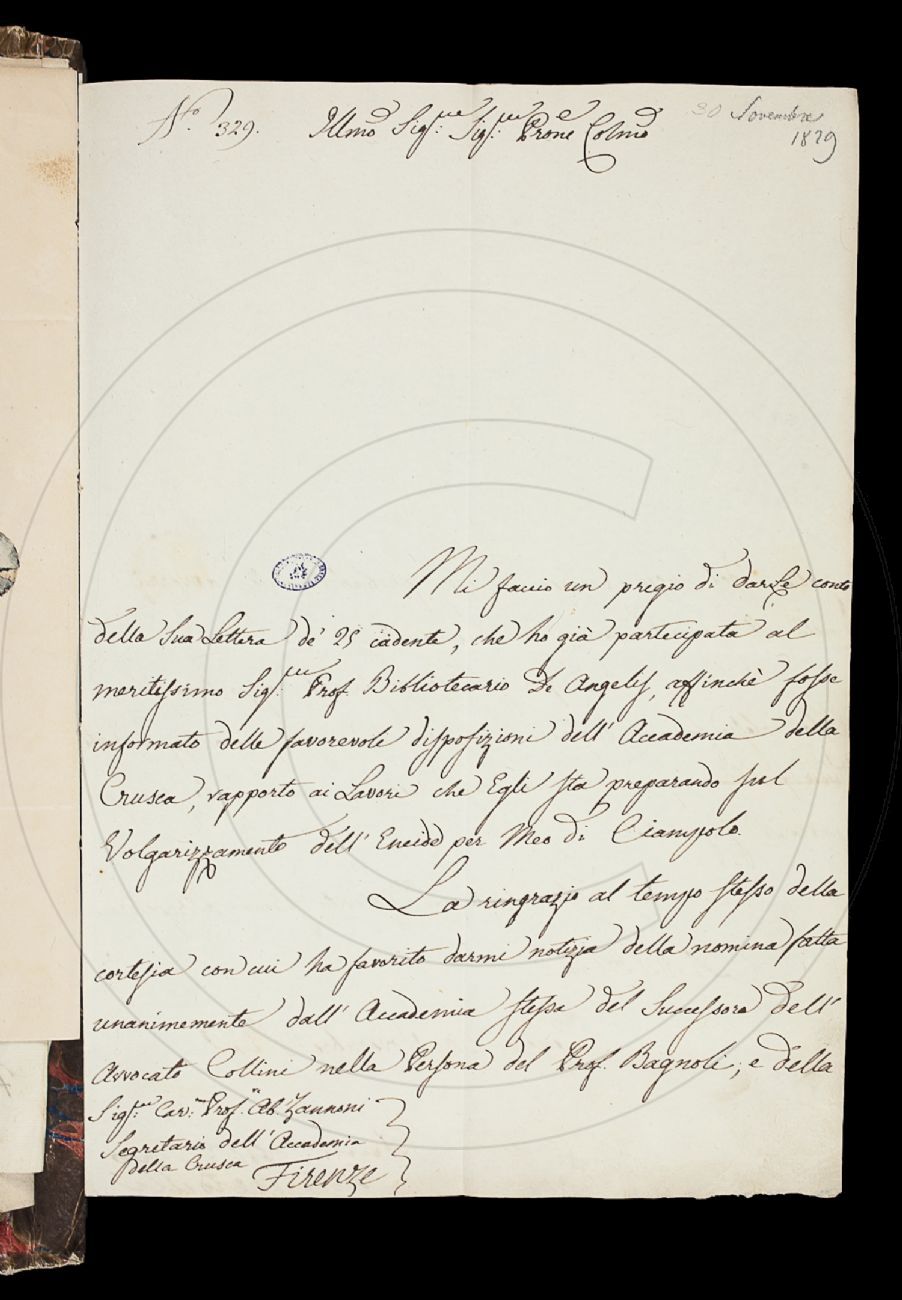 N.º 329. Illmo Sig.re Sig.re Prone Colmo
30 Novembre
1829
Mi faccio un pregio di darLe conto
della Sua Lettera de' 25 cadente, che ho già partecipata al
meritissimo Sig.re Prof. Bibliotecario De Angelis, affinchè fosse
informato delle favorevole disposizioni dell' Accademia della
Crusca, rapporto ai Lavori che Egli sta preparando sul
Volgarizzamento dell' Eneide per Meo di Ciampolo.
La ringrazio al tempo stesso della
cortesia con cui ha favorito darmi notizia della nomina fatta
unanimemente dall' Accademia stessa del Successore dell'
Avvocato Collini nella Persona del Prof. Bagnoli, e della
Sig.re Cav.re Prof.re Ab. Zannoni
Segretario dell' Accademia
della Crusca
Firenze